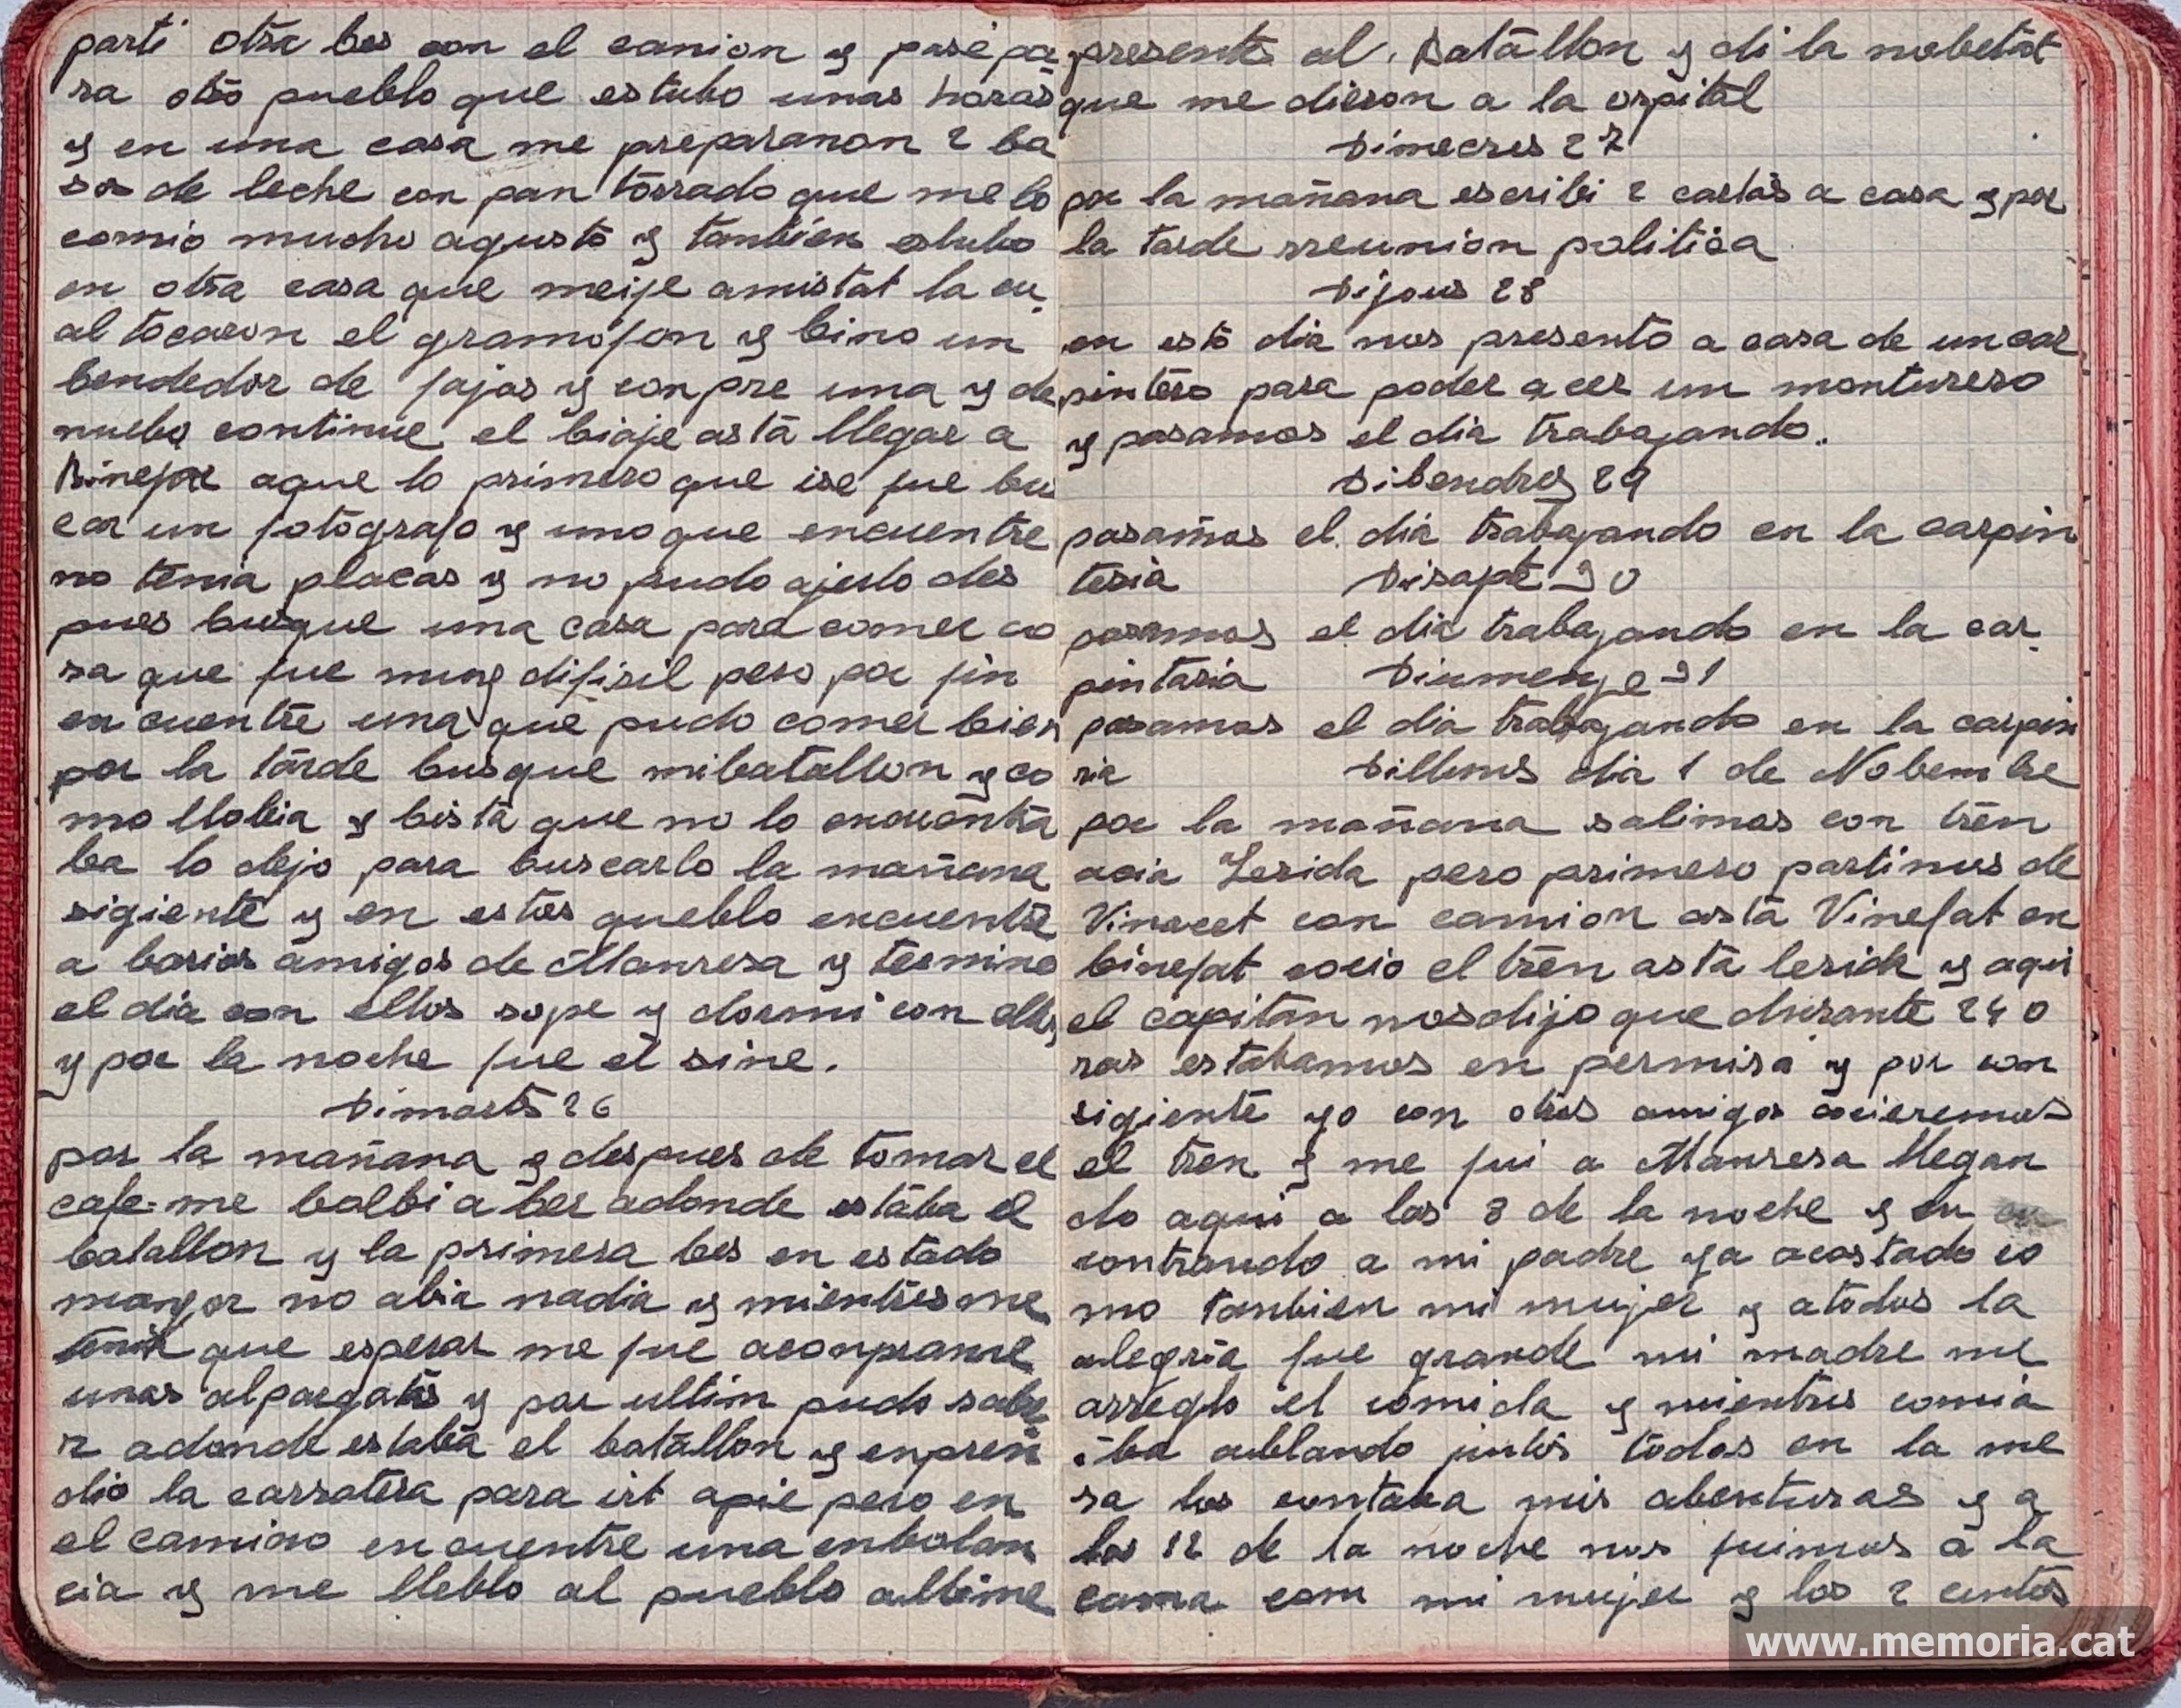 parti otra bes con el camion y pasé pa
ra otro pueblo que estubo unas horas
y en una casa me prepararon 2 ba
sos de leche con pan torrado que me lo
comio mucho agusto y tanbien estubo
en otra casa que meije amistat la cu
al tocaron el gramofon y bino un
bendedor de fajas y conpre una y de
nuebo continue el biaje asta llegar a
Binefar aque lo primero que ise fue bus
car un fotografo y uno que encuentre
no tenia placas y no pudo ajerlo des
pues busque una casa para comer co
sa que fue muy difisil pero por fin
en cuentre una que pudo comer bien
por la tarde busque mi batallon y co
mo llobia y bista que no lo encuentra
ba lo dejo para buscarlo la mañana
sigiente y en estes pueblo encuentre
a barios amigos de Manresa y termino
el dia con ellos sope y dormi con ellos
y por la noche fue el sine.
Dimarts 26
por la mañana y despues de tomar el
cafe me bolbi a ber adonde estaba el
batallon y la primera bes en estado
mayor no abia nadia y mientres me
tenia que esperar me fue aconprarme
unas alpargatas y por ultim pudo sabe
r adonde estaba el batallon y enpren
dio la carratera para irt apie pero en
el camino en cuentre una enbolan
cia y me lleblo al pueblo allime
presente al Batallon y di la nobetat
que me dieron a la ospital
Dimecres 27
por la mañana escribi 2 cartas a casa y por
la tarde rreunion politica
Dijous 28
en esto dia nos presento a casa de un car
pintero para poder acer un monturero
y pasamos el dia trabajando.
Dibendres 29
pasamos el dia trabajando en la carpin
teria Disapte 30
pasamos el dia trabajando en la car
pintaria Diumenge 31
pasamos el dia trabajando en la carpin
ria Dilluns dia 1 de Nobembre
por la mañana salimos con tren
acia Lerida pero primero partimos de
Vinacet con camion asta Vinefat en
binefat cocio el tren asta lerida y aqui
el capitan nos dijo que durante 24 o
ras estabamos en permisa y por con
sigiente yo con otros amigos cocieremos
el tren y me fui a Manresa llegan
do aqui a las 8 de la noche y en
contrando a mi padre ya acostado co
mo tanbien mi mujer y a todos la
alegria fue grande mi madre me
arreglo el comida y mientres comia
iba ablando juntos todos en la me
sa los contaba mis abenturas y a
las 12 de la noche nos fuimos a la
cama con mi mujer y los 2 juntos
www.memoria.cat